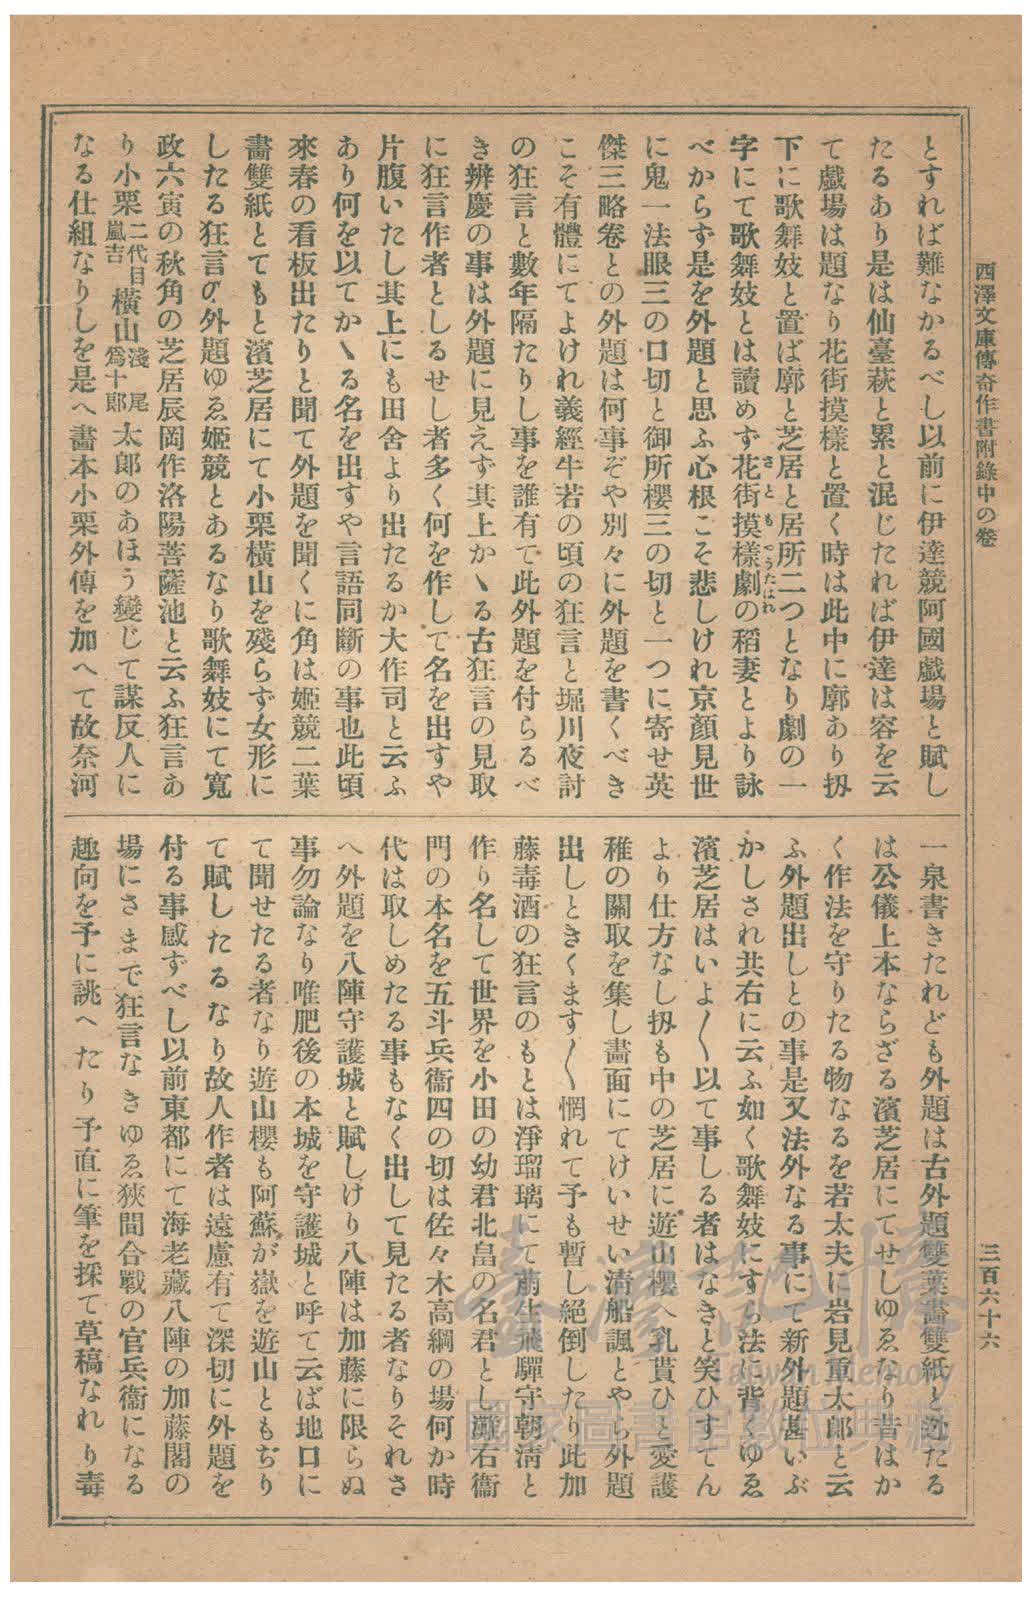 西澤文庫傳奇作書附錄中の卷
三百六十六
とすれば難なかるべし以前に伊達競阿國戲場と賦し
たるあり是は仙臺萩と累と混じたれば伊達は容を云
て戲場は題なり花街摸樣と置く時は此中に廓あり扨
下に歌舞妓と置ば廓と芝居と居所二つとなり劇の一
字にて歌舞妓とは讀めず花街摸樣劇の稻妻とより詠
べからず是を外題と思ふ心根こそ悲しけれ京顏見世
に鬼一法眼三の口切と御所櫻三の切と一つに寄せ英
傑三略卷との外題は何事ぞや別々に外題を書くべき
こそ有體にてよけれ義經牛若の頃の狂言と堀川夜討
の狂言と數年隔たりし事を誰有て此外題を付らるべ
き辨慶の事は外題に見えず其上かゝる古狂言の見取
に狂言作者としるせし者多く何を作して名を出すや
片腹いたし其上にも田舍より出たるか大作司と云ふ
あり何を以てかゝる名を出すや言語同斷の事也此頃
來春の看板出たりと聞て外題を聞くに角は姬競二葉
畵雙紙とてもと濱芝居にて小栗橫山を殘らず女形に
したる狂言の外題ゆゑ姬競とあるなり歌舞妓にて寬
政六寅の秋角の芝居辰岡作洛陽菩薩池と云ふ狂言あ
り小栗二代目嵐吉橫山淺尾爲十郞太郎のあほう變じて謀反人に
なる仕組なりしを是へ畵本小栗外傳を加へて故奈河
一泉書きたれども外題は古外題雙葉畵雙紙と迯たる
は公儀上本ならざる濱芝居にてせしゆゑなり昔はか
く作法を守りたる物なるを若太夫に岩見重太郎と云
ふ外題出しとの事是又法外なる事にて新外題甚いぶ
かしされ共右に云ふ如く歌舞妓にすら法に背くゆゑ
濱芝居はいよ〳〵以て事しる者はなきと笑ひすてん
より仕方なし扨も中の芝居に遊山櫻へ乳貰ひと愛護
稚の關取を集し畵面にてけいせい淸船諷とやら外題
出しときくます〳〵惘れて予も暫し絕倒したり此加
藤毒酒の狂言のもとは淨瑠璃にて萠生飛驒守朝淸と
作り名して世界を小田の幼君北畠の名君とし灘右衞
門の本名を五斗兵衞四の切は佐々木高綱の場何か時
代は取しめたる事もなく出して見たる者なりそれさ
へ外題を八陣守護城と賦しけり八陣は加藤に限らぬ
事勿論なり唯肥後の本城を守護城と呼て云ば地口に
て聞せたる者なり遊山櫻も阿蘇が嶽を遊山ともぢり
て賦したるなり故人作者は遠慮有て深切に外題を
付る事感ずべし以前東都にて海老藏八陣の加藤閤の
場にさまで狂言なきゆゑ狹間合戰の官兵衞になる
趣向を予に誂へたり予直に筆を採て草稿なれり毒